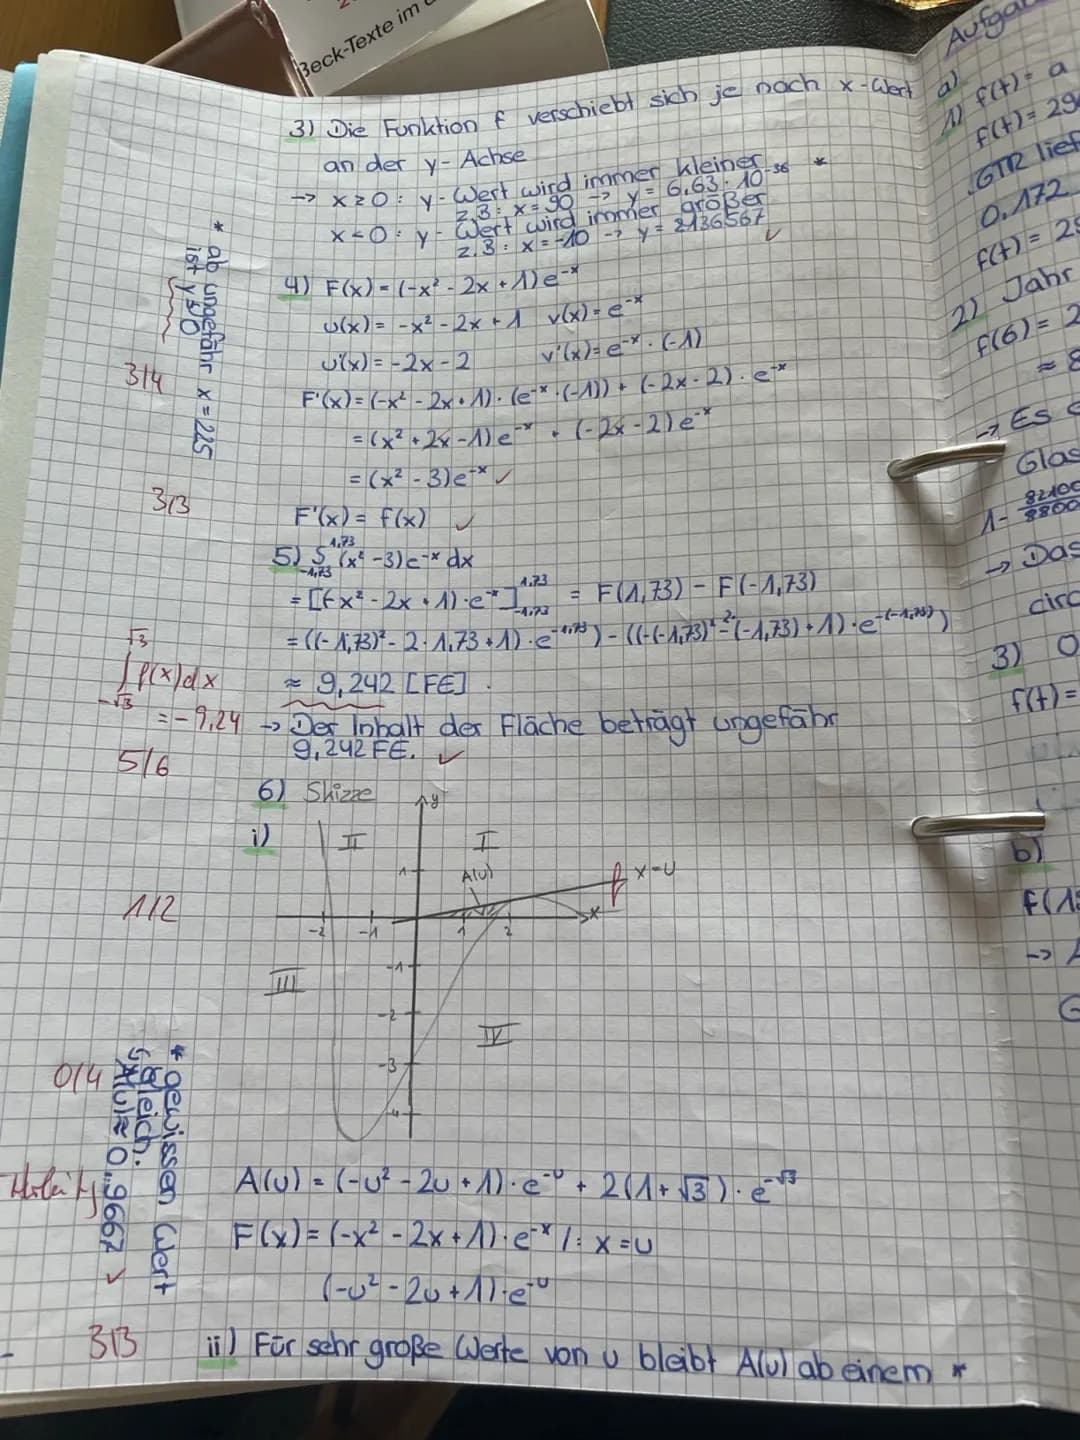 Beck-Texte im
3) Die Funktion f verschiebt sich je nach x-Wert
an der y-Achse
→ x ≥ 0 : y-Wert wird immer kleiner *
z.B: x = 90 → y = 6,63 · 10^-36
x < 0 : y-Wert wird immer größer
z.B: x = -10 → y = 2136567 ✓
* ab ungefähr x = 225
ist y ≈ 0
3/4
4) F(x) = (-x² - 2x + 1) e^-x
u(x) = -x² - 2x + 1 v(x) = e^-x
u'(x) = -2x - 2 v'(x) = e^-x · (-1)
F'(x) = (-x² - 2x + 1) · (e^-x · (-1)) + (-2x - 2) · e^-x
= (x² + 2x - 1) e^-x + (-2x - 2) e^-x
= (x² - 3) e^-x ✓
3/3
F'(x) = f(x) ✓
5) ∫_-1,73^1,73 (x² - 3) e^-x dx
= [(-x² - 2x + 1) · e^-x]_-1,73^1,73 = F(1,73) - F(-1,73)
= ((-1,73)² - 2 · 1,73 + 1) · e^-1,73) - ((-(-1,73)² - 2 (-1,73) + 1) · e^-(-1,73))
≈ 9,242 [FE].
∫_-√3^√3 f(x) dx
= -9,24
→ Der Inhalt der Fläche beträgt ungefähr
9,242 FE. ✓
5/6
6) Skizze
i)
y
II I
1
A(u)
x=u
f
x
-2 -1 1 2
-1
III
-2
IV
-3
-4
1/2
0/4
A(u) = (-u² - 2u + 1) · e^-u + 2(1 + √3) · e^-√3
F(x) = (-x² - 2x + 1) · e^-x | : x = u
(-u² - 2u + 1) · e^-u
3/3
ii) Für sehr große Werte von u bleibt A(u) ab einem *
* gewissen Wert
gleich.
↳ A(u) ≈ 0,9667 ✓
a)
1) f(t) = a
f(t) = 29
GTR lief
0,172
f(t) = 29
2) Jahr
f(6) = 2
≈ 8
→ Es
Glas
1- 82100/8800
→ Das
circ
3) O
f(t) =
b)
f(1
→
G